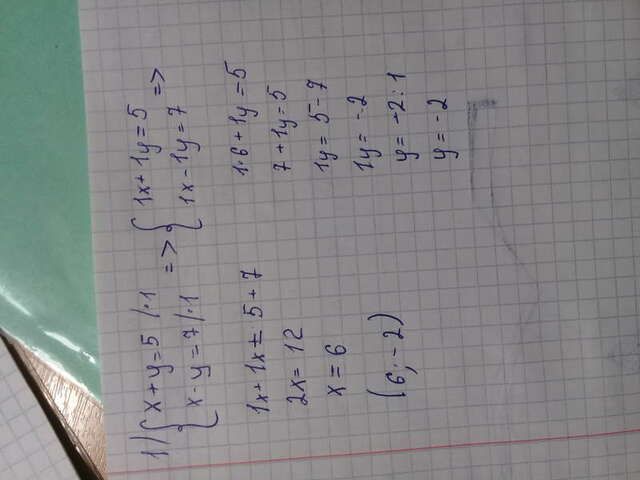 1) { x + y = 5 /·1 => { 1x + 1y = 5 =>
x - y = 7 /·1 1x - 1y = 7
1x + 1x = 5 + 7
2x = 12
x = 6
(6; -2)
1·6 + 1y = 5
7 + 1y = 5
1y = 5 - 7
1y = -2
y = -2 : 1
y = -2